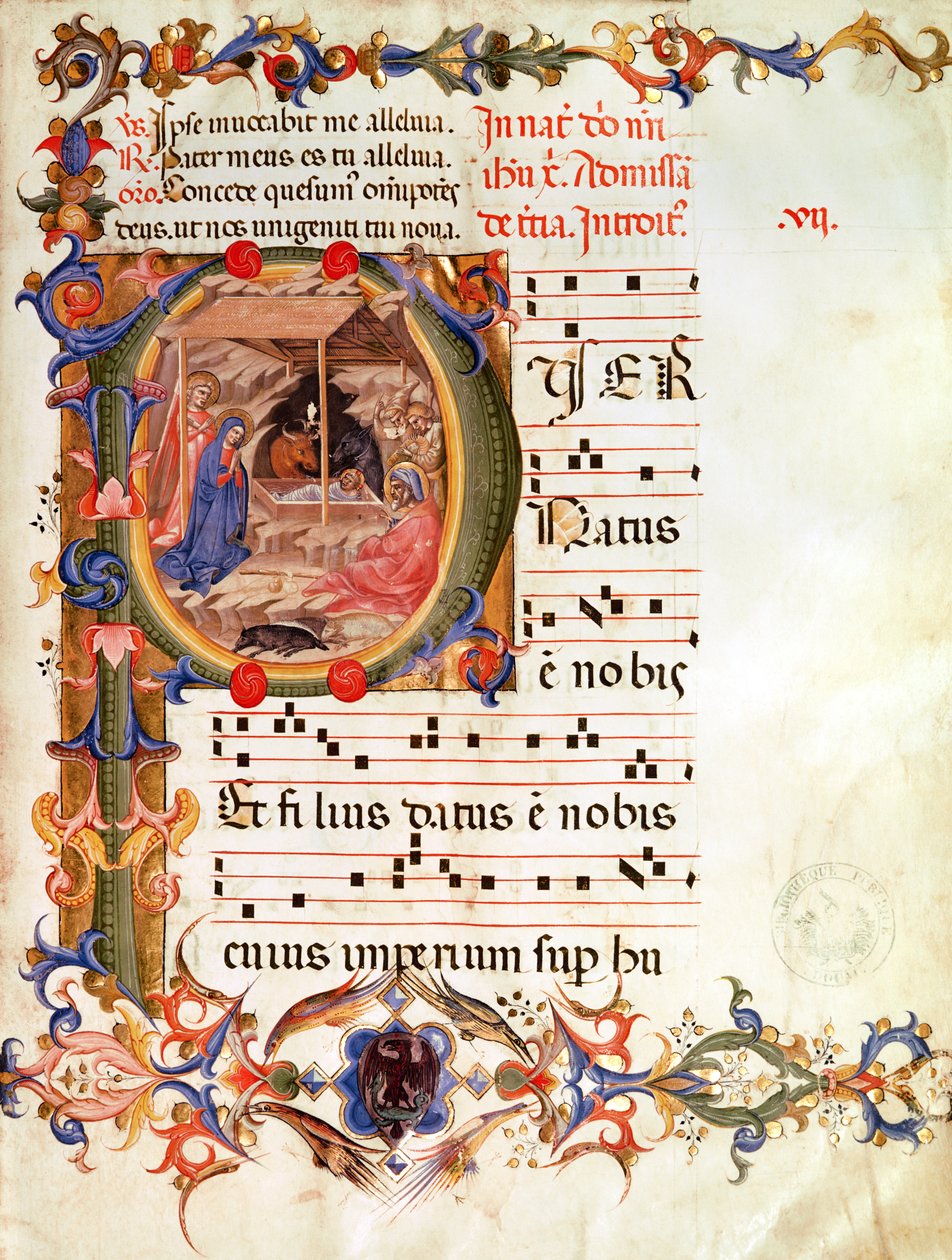 Vs. Ipse inuocabit me alleluia.
R. Pater meus es tu alleluia.
oro. Concede quesum9 omĩpotẽs
deus. ut nos unigeniti tui noua.
In nat̉ dõ nr̃i
ihũ x̃. Ad missã
de t̉tia. Introit9.
.vij.
PUER
Natus
ẽ nobis
Et filius datus ẽ nobis
cuius imperium sup hu